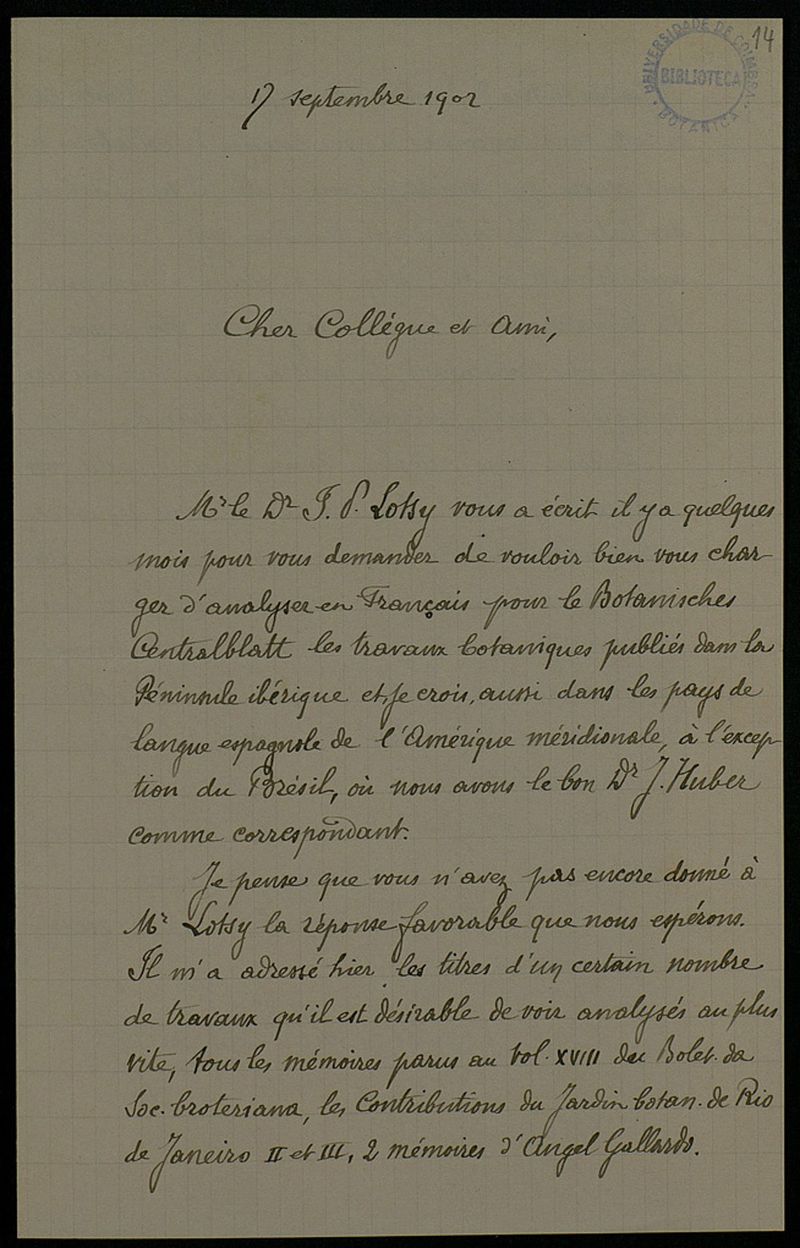 14
UNIVERSIDADE DE COIMBRA
BIBLIOTECA
BOTANICA
17 septembre 1902
Cher Collégue et Ami,
Mr le Dr J. P. Lotsy vous a écrit il y a quelques
mois pour vous demander de vouloir bien vous char-
ger d'analyser en Français pour le Botanisches
Centralblatt les travaux botaniques publiés dans la
Péninsule ibérique et, je crois, aussi dans les pays de
langue espagnole de l'Amérique méridionale, à l'excep-
tion du Brésil, où nous avons le bon Dr J. Huber
comme correspondant.
Je pense que vous n'avez pas encore donné à
Mr Lotsy la réponse favorable que nous espérons.
Il m'a adressé hier les titres d'un certain nombre
de travaux qu'il est désirable de voir analysés au plus
vite, tous les mémoires parus au vol. XVIII du Bolet. da
Soc. broteriana, les Contributions du Jardin botan. de Rio
de Janeiro II et III, 2 mémoires d'Angel Gallardo.